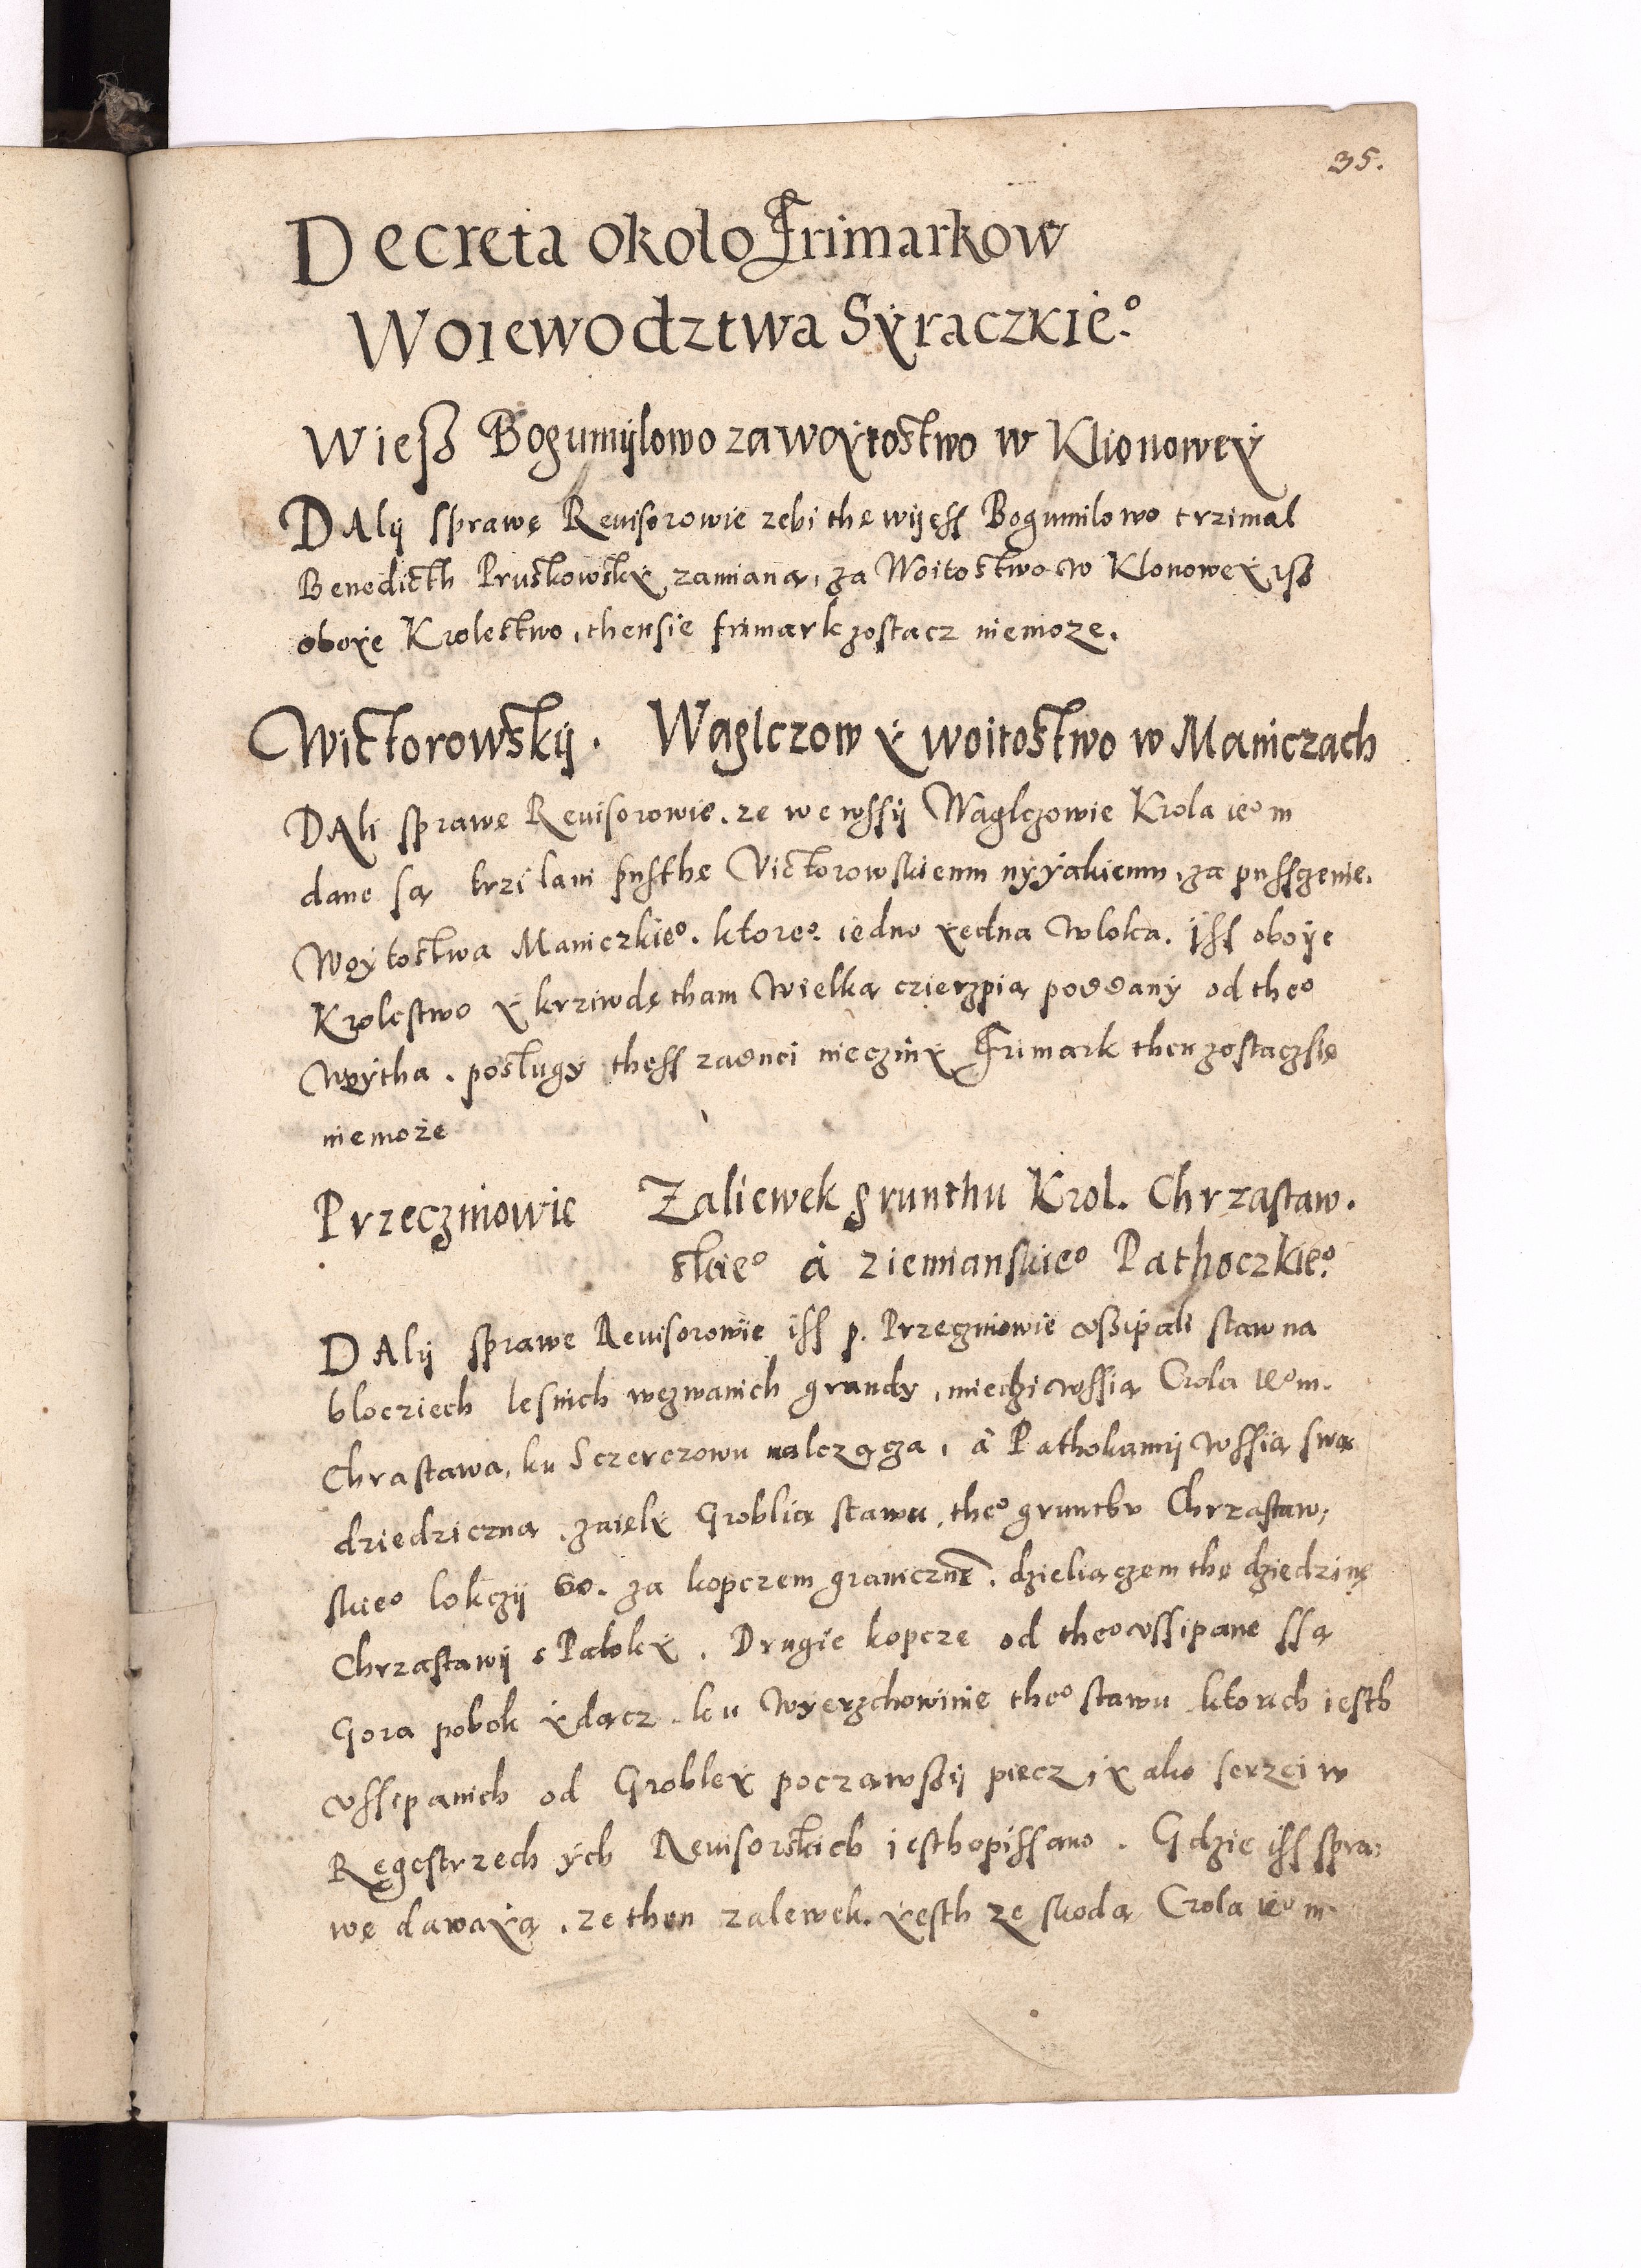 35.
Decreta około Frimarkow
Woiewodztwa Syraczkie.º
Wieß Bogumijlowo za woytostwo w Klionowey
DAlij sprawę Reuisorowie zebi thę wijess Bogumilowo trzimal
Benedicth Pruskowsky zamianą, za Woitostwo w Klonowey iß
oboye Krolestwo, then sie frimark zostacz niemoze.
Wictorowskij. Wąglczow y woitostwo w Maniczach
DAli sprawę Reuisorowie. ze we wssij Wąglczowie Krola ieº m
dane są trzi lani pusthe Victorowskiemu nyyakiemu, za pussczenie.
Woytostwa Maniczkieº. ktoreº. iedno yedna wloka. Iss oboije
Krolestwo y krziwdę tham wielką czierzpią poddany od theº
woytha. poslugy thess zadnei nieczini Frimark then zostaczsię
niemoże
Przeczniowie Zaliewek grunthu Krol. Chrząstaw.
skieº à ziemianskieº Pathoczkieº.
DAlij sprawę Reuisorowie iss p. Przeczniowie vßipali staw na
blocziech lesnich wezwanich grundy, miedzi wssią Crola ieº m.
Chrastawa, ku Sczerczowu nalczącza, à Pathokamij wssią swą
dziedziczna. zaięly Groblią stawu, theº grunthv Chrząstaw,
skieº lokczij 60. za kopczem granicznē. dzieliączem thę dziedzinę
Chrząstawij s Patoky. Drugie kopcze od theº vssipane ssą
Gora pobok ydącz. ku wyerzchowinie theº stawu ktorich iesth
vssipanich od Grobley począwßij piecz, y ako serzei w
Ręgestrzech ych Reuisorskich iesth opissano. Gdzie iss spra,
wę dawayą. ze then zalewek. yesth ze skodą Crola ieº m.